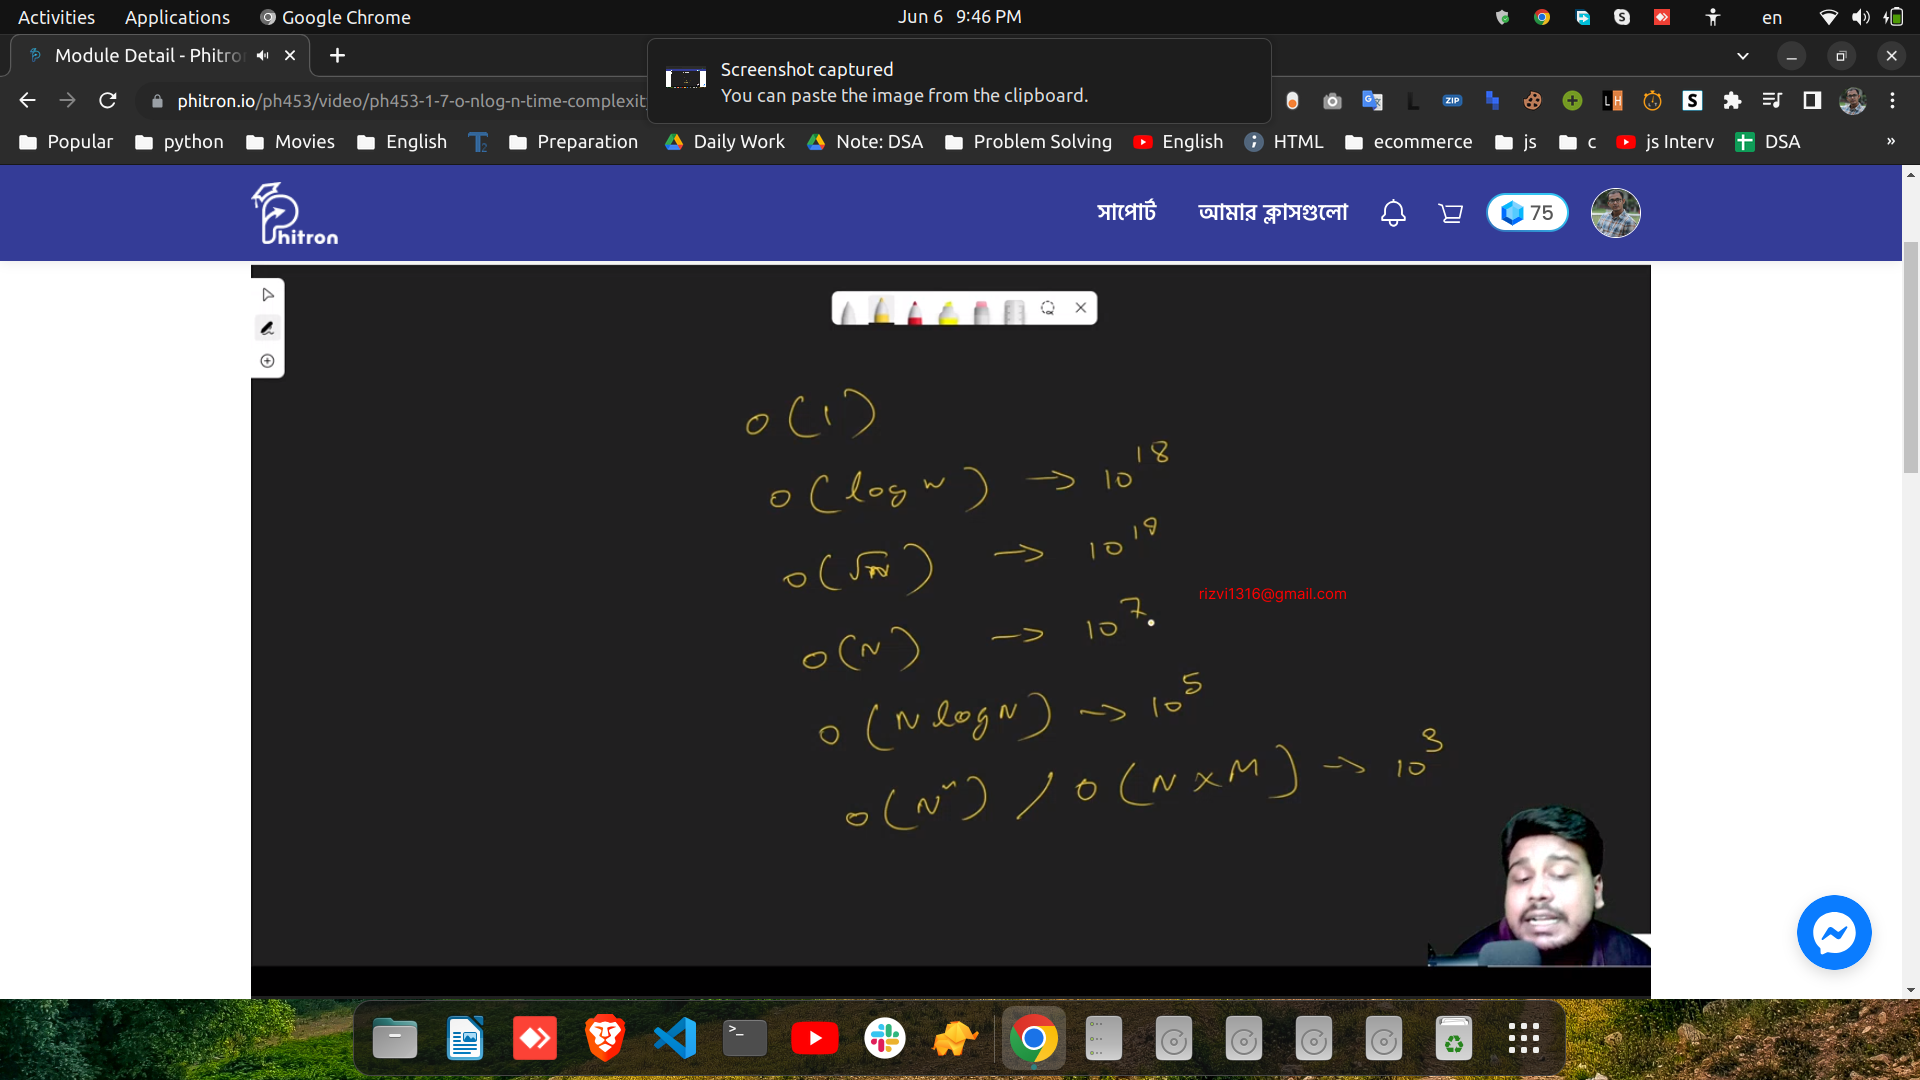 Activities Applications Google Chrome Jun 6 9:46 PM en
Module Detail - Phitro
Screenshot captured
You can paste the image from the clipboard.
phitron.io/ph453/video/ph453-1-7-o-nlog-n-time-complexit
Popular python Movies English Preparation Daily Work Note: DSA Problem Solving English HTML ecommerce js c js Interv DSA »
Phitron সাপোর্ট আমার ক্লাসগুলো 75
O(1)
O(log N) → 10^18
O(√N) → 10^18
rizvi1316@gmail.com
O(N) → 10^7
O(N log N) → 10^5
O(N²) / O(N×M) → 10^3